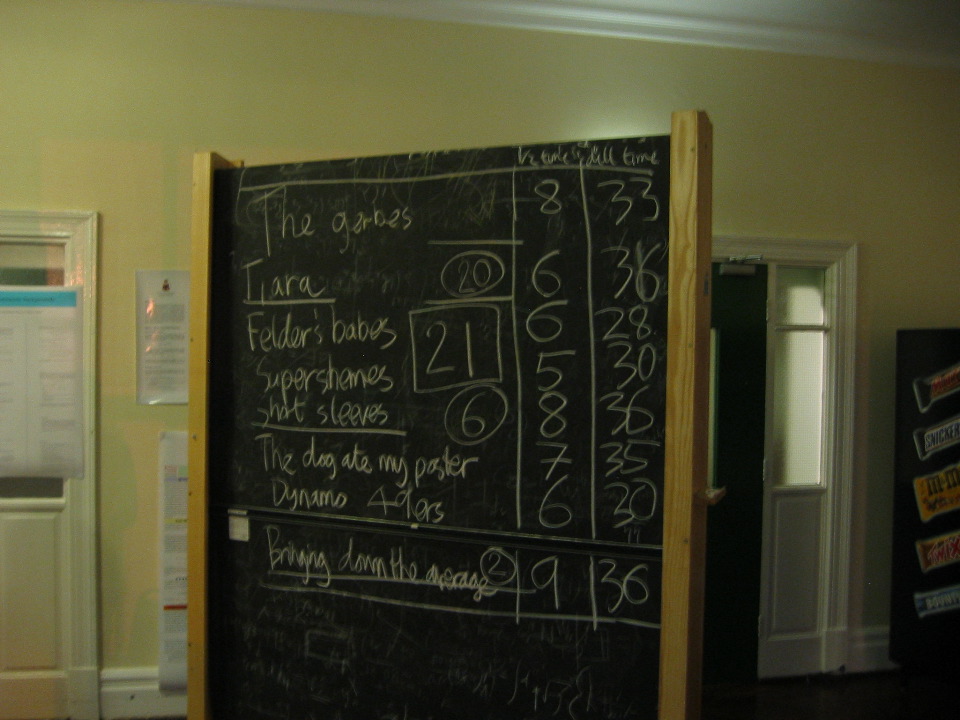 1/2 time full time
The gerbes 8 33
Tiara 20 6 36
Felder's babes 21 6 28
Supershemes 5 30
shot sleeves 6 8 36
The dog ate my poster 7 35
Dynamo 49ers 6 30
Bringing down the average 2 9 36
SNICKERS